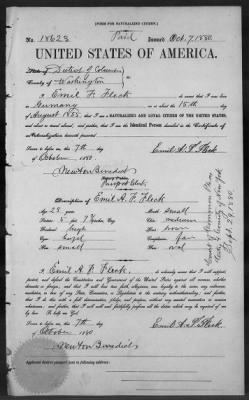 [FORM FOR NATURALIZED CITIZEN.]
No. 18623 Paid Issued Oct. 7, 1880
UNITED STATES OF AMERICA.
District of Columbia
County of Washington
I, Emil F. Fleck, do swear that I was born in
Germany on or about the 15th day of
August 1855; that I am a NATURALIZED AND LOYAL CITIZEN OF THE UNITED STATES,
and about to travel abroad; and further that I am the Identical Person described in the Certificate of
Naturalization herewith presented.
Sworn to before me this 7th day Emil A. F. Fleck
of October 1880
Newton Benedict
Notary Public
Passport Clerk.
Description of Emil A. F. Fleck
Age: 25 years Mouth: small
Stature: 5 feet 7 inches, Eng. Chin: medium
Forehead: high Hair: brown
Eyes: hazel Complexion: fair
Nose: small Face: oval
I, Emil A. F. Fleck, do solemnly swear that I will support, protect,
and defend the Constitution and Government of the United States against all enemies, whether
domestic or foreign; and that I will bear true faith, allegiance, and loyalty to the same, any ordinance,
resolution, or law of any State, Convention, or Legislature to the contrary notwithstanding; and further,
that I do this with a full determination, pledge, and purpose, without any mental reservation or
evasion whatsoever; and further, that I will well and faithfully perform all the duties which may be required of me by law:
So help me God.
Sworn to before me this 7th day Emil A. F. Fleck
of October 1880
Newton Benedict
Court of Common Pleas
City & County of New York
Sept. 1880